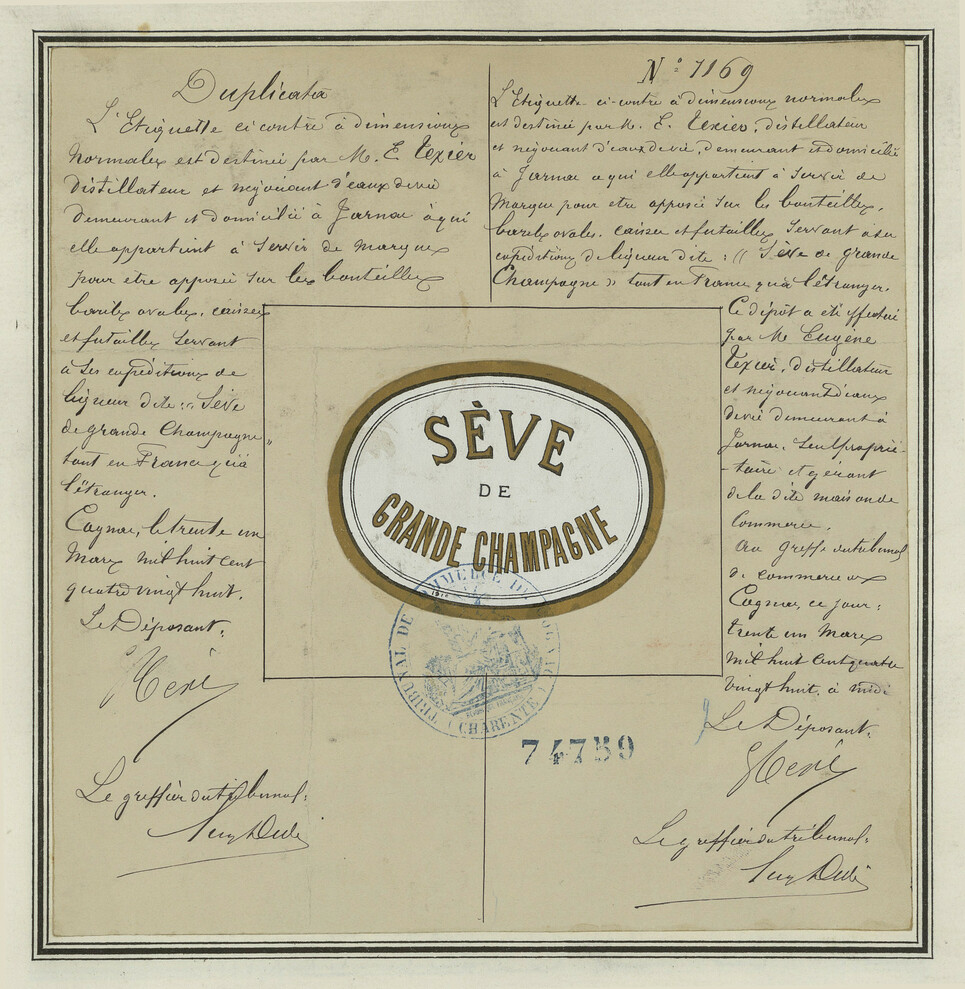 Duplicata
L'Etiquette ci contre à dimensions
normales est destinée par M. E. Texier
distillateur et négociant d'eaux de vie
demeurant et domicilié à Jarnac à qui
elle appartient à servir de marque
pour etre apposée sur les bouteilles
barils ovales, caisses
et futailles servant
à ses expéditions de
liqueur dite : « Sève
de grande Champagne »
tant en France qu'à
l'étranger.
Cognac, le trente un
Mars mil huit cent
quatre vingt huit.
Le Déposant,
Le greffier du tribunal,
N° 1169
L'Etiquette ci-contre à dimensions normales
est destinée par M. E. Texier, distillateur
et négociant d'eaux de vie, demeurant et domicilié
à Jarnac a qui elle appartient à servir de
Marque pour etre apposée sur les bouteilles,
barils ovales, caisses et futailles servant a ses
expéditions de liqueur dite : « Sève de grande
Champagne » tant en France qu'à l'étranger.
Ce dépôt a été effectué
par M. Eugène
Texier, distillateur
et négociant d'eaux
de vie demeurant à
Jarnac, seul proprié-
-taire et gérant
de la dite maison de
Commerce.
Au greffe du tribunal
de commerce de
Cognac, ce jour :
trente un Mars
mil huit cent quatre
vingt huit, à midi
Le Déposant,
Le greffier du tribunal,
SÈVE
DE
GRANDE CHAMPAGNE
TRIBUNAL DE COMMERCE DE COGNAC
(CHARENTE)
74759